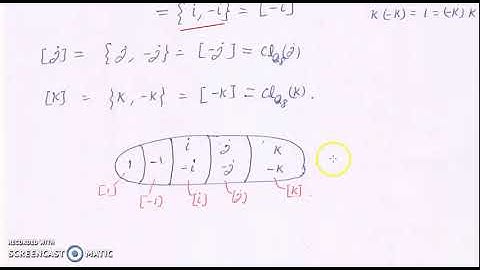 = {i, -i} = [-i]
K(-K) = 1 = (-K)K
[j] = {j, -j} = [-j] = Cl_Q8(j)
[K] = {K, -K} = [-K] = Cl_Q8(K).
1 -1 i j K
-i -j -K
[1] [-1] [i] [j] [K].
RECORDED WITH
SCREENCAST MATIC